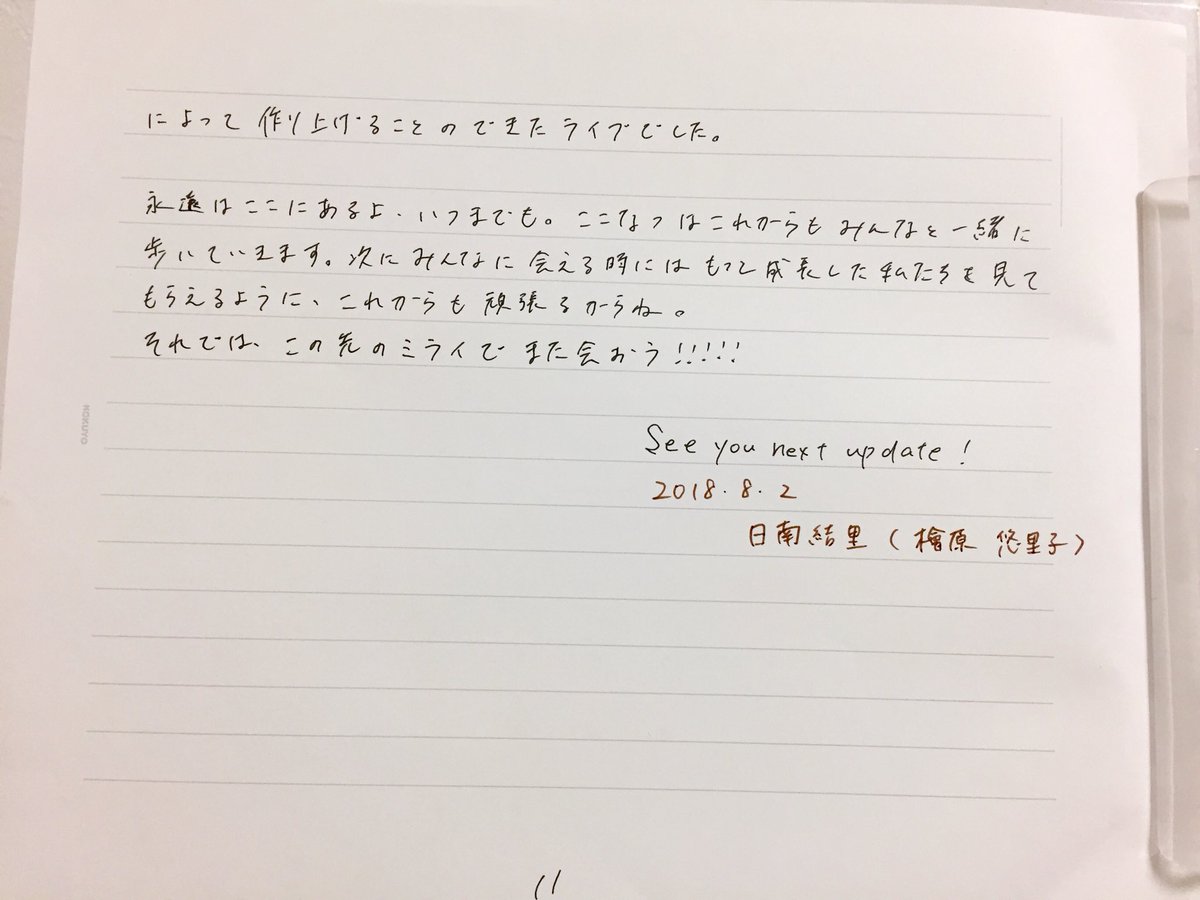 によって作り上げることのできたライブでした。
永遠はここにあるよ、いつまでも。ここなつはこれからもみんなと一緒に
歩いていきます。次にみんなに会える時にはもっと成長した私たちを見て
もらえるように、これからも頑張るからね。
それでは、この先のミライでまた会おう!!!!!
KOKUYO
See you next update!
2018.8.2
日南結里(檜原 悠里子)
11